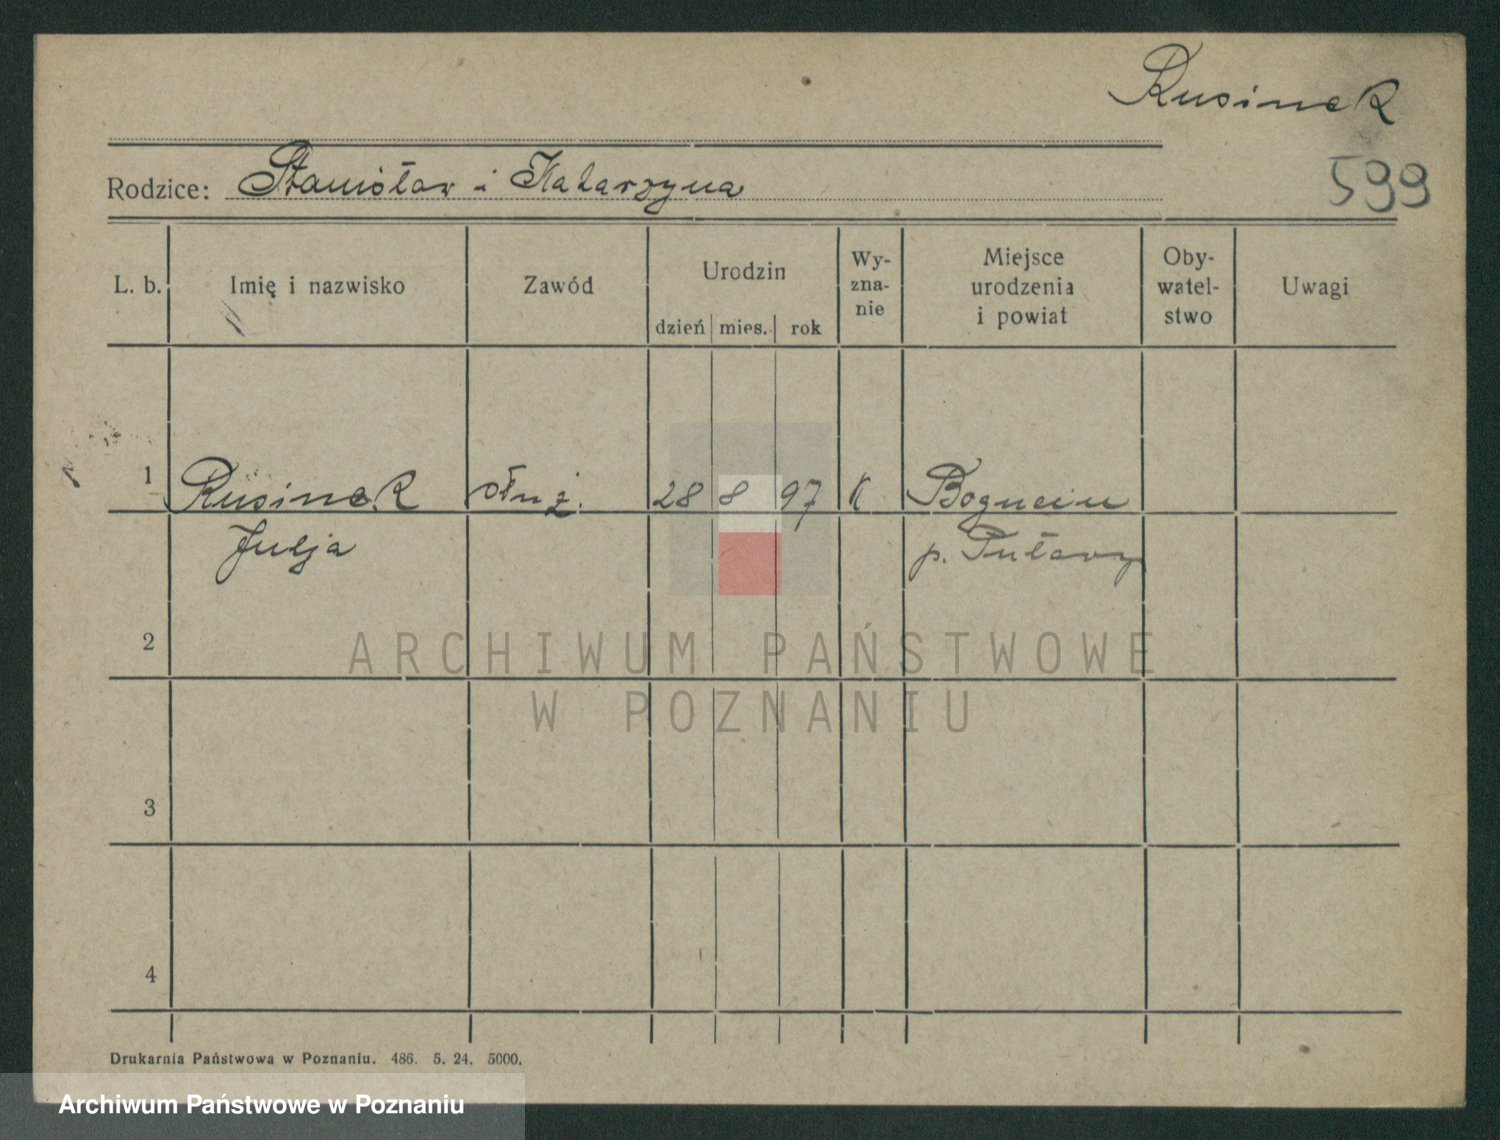 Rusinek
Rodzice: Stanisław i Katarzyna
599
L. b. Imię i nazwisko Zawód Urodzin Wy- Miejsce Oby- Uwagi
zna- urodzenia watel-
dzień mies. rok nie i powiat stwo
1 Rusinek służ. 28 8 97 K
Julja p. Puławy
2
ARCHIWUM PAŃSTWOWE
W POZNANIU
3
4
Drukarnia Państwowa w Poznaniu. 486. 5. 24. 5000.
Archiwum Państwowe w Poznaniu